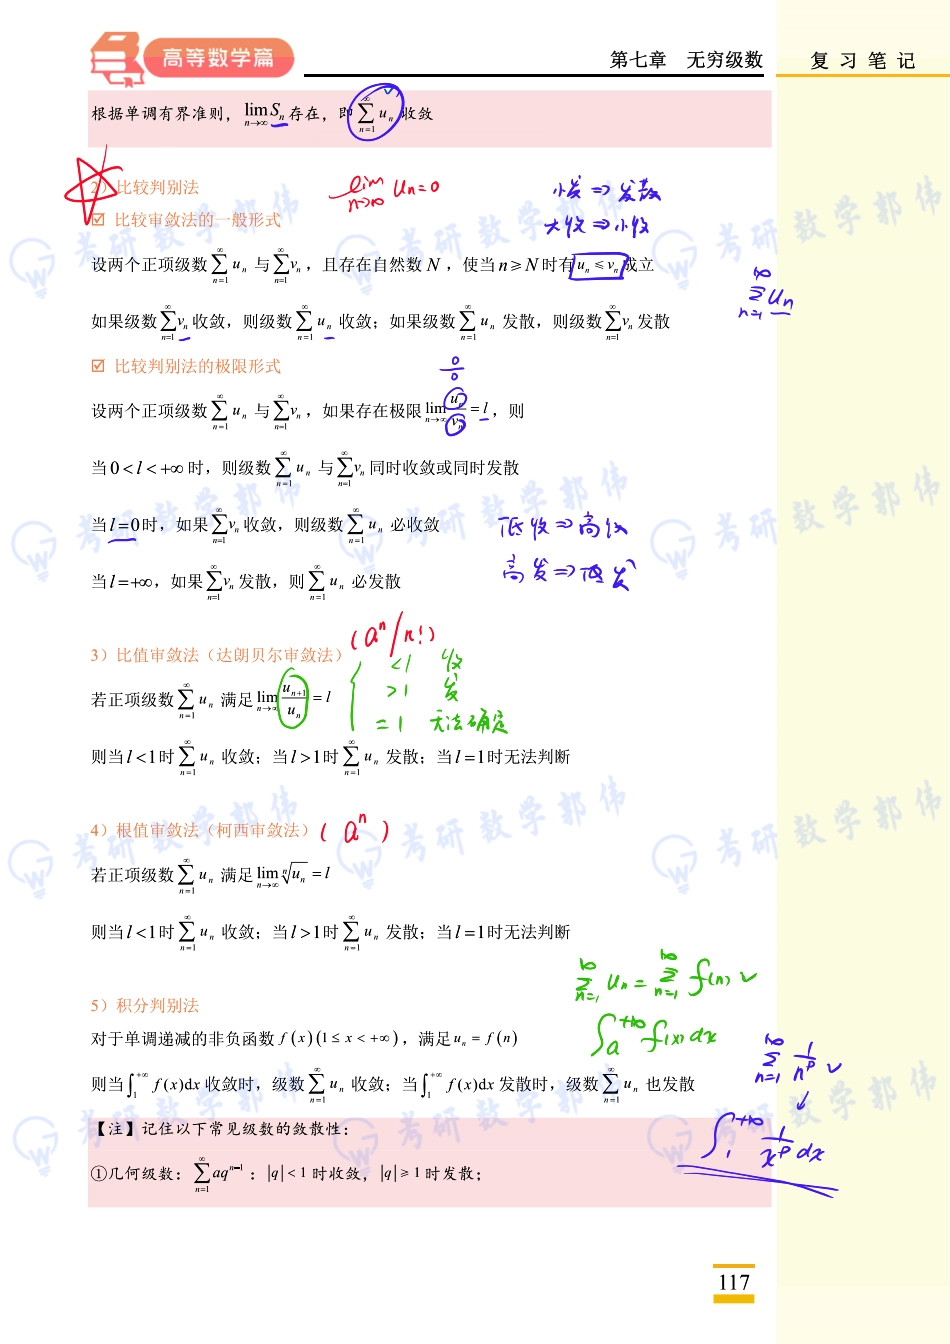 高等数学篇
第七章 无穷级数
复习笔记
根据单调有界准则，lim_{n→∞} S_n 存在，即 ∑_{n=1}^{∞} u_n 收敛
2）比较判别法
lim_{n→∞} u_n=0
小发⇒发散
☑ 比较审敛法的一般形式
大收⇒小收
设两个正项级数 ∑_{n=1}^{∞} u_n 与 ∑_{n=1}^{∞} v_n，且存在自然数 N，使当 n≥N 时有 u_n≤v_n 成立
∑_{n=1}^{∞} u_n
如果级数 ∑_{n=1}^{∞} v_n 收敛，则级数 ∑_{n=1}^{∞} u_n 收敛；如果级数 ∑_{n=1}^{∞} u_n 发散，则级数 ∑_{n=1}^{∞} v_n 发散
☑ 比较判别法的极限形式
0/0
设两个正项级数 ∑_{n=1}^{∞} u_n 与 ∑_{n=1}^{∞} v_n，如果存在极限 lim_{n→∞} u_n/v_n = l，则
当 0<l<+∞ 时，则级数 ∑_{n=1}^{∞} u_n 与 ∑_{n=1}^{∞} v_n 同时收敛或同时发散
当 l=0 时，如果 ∑_{n=1}^{∞} v_n 收敛，则级数 ∑_{n=1}^{∞} u_n 必收敛
低收⇒高收
当 l=+∞，如果 ∑_{n=1}^{∞} v_n 发散，则 ∑_{n=1}^{∞} u_n 必发散
高发⇒低发
3）比值审敛法（达朗贝尔审敛法）
(a^n/n!)
<1 收
若正项级数 ∑_{n=1}^{∞} u_n 满足 lim_{n→∞} u_{n+1}/u_n = l
>1 发
=1 无法确定
则当 l<1 时 ∑_{n=1}^{∞} u_n 收敛；当 l>1 时 ∑_{n=1}^{∞} u_n 发散；当 l=1 时无法判断
4）根值审敛法（柯西审敛法）
(a^n)
若正项级数 ∑_{n=1}^{∞} u_n 满足 lim_{n→∞} ⁿ√u_n = l
则当 l<1 时 ∑_{n=1}^{∞} u_n 收敛；当 l>1 时 ∑_{n=1}^{∞} u_n 发散；当 l=1 时无法判断
∑_{n=1}^{∞} u_n = ∑_{n=1}^{∞} f(n) ✓
5）积分判别法
对于单调递减的非负函数 f(x)(1≤x<+∞)，满足 u_n=f(n)
∫_a^{+∞} f(x)dx
则当 ∫_1^{+∞} f(x)dx 收敛时，级数 ∑_{n=1}^{∞} u_n 收敛；当 ∫_1^{+∞} f(x)dx 发散时，级数 ∑_{n=1}^{∞} u_n 也发散
∑_{n=1}^{∞} 1/n^p ✓
【注】记住以下常见级数的敛散性：
∫_1^{+∞} 1/x^p dx
①几何级数：∑_{n=1}^{∞} aq^{n-1}：|q|<1 时收敛，|q|≥1 时发散；
117
考研数学郭伟